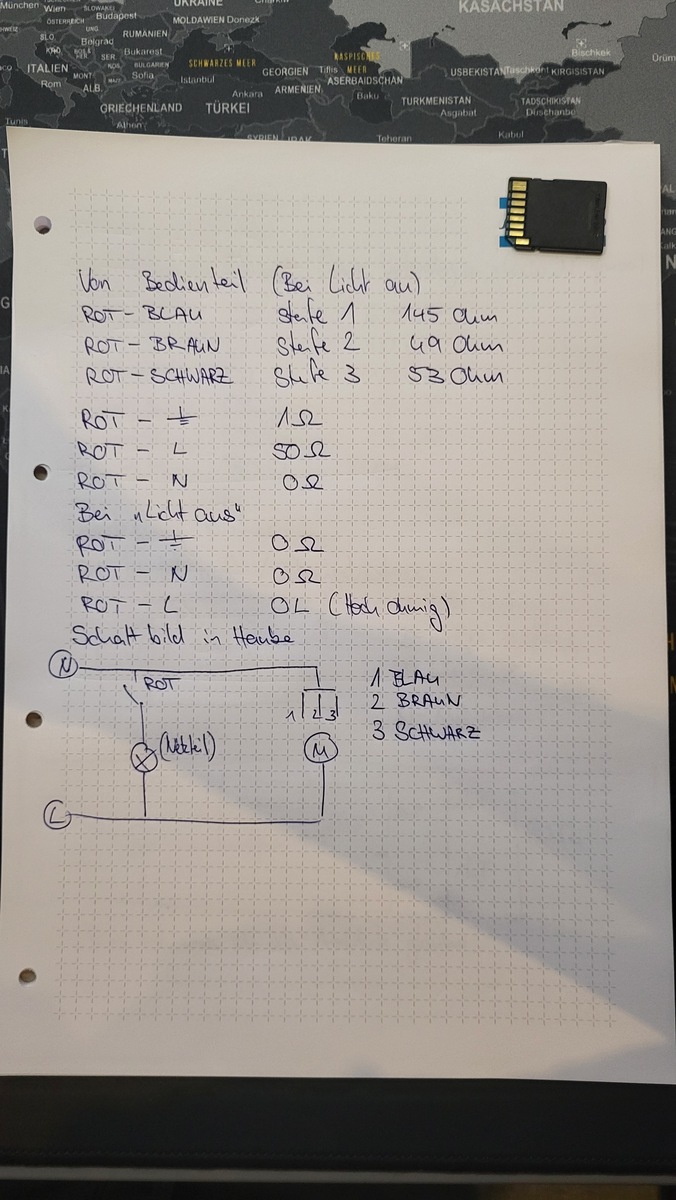 München
Wien
SLOWAKEI
UKRAINE
KASACHSTAN
ÖSTERREICH
Budapest
MOLDAWIEN
Donezk
RUMÄNIEN
Belgrad
Bukarest
ITALIEN
BULGARIEN
SCHWARZES MEER
KASPISCHES
MEER
Bischkek
Rom
MONT.
Sofia
Istanbul
GEORGIEN
Tiflis
USBEKISTAN
Taschkent
KIRGISISTAN
ALB.
Ankara
ARMENIEN
ASERBAIDSCHAN
Baku
TURKMENISTAN
TADSCHIKISTAN
GRIECHENLAND
TÜRKEI
Asgabat
Duschanbe
Tunis
Athen
SYRIEN
IRAK
Teheran
Kabul
Von Bedienteil (Bei Licht an)
ROT - BLAU Stufe 1 145 Ohm
ROT - BRAUN Stufe 2 49 Ohm
ROT - SCHWARZ Stufe 3 53 Ohm
ROT - ⏚ 1Ω
ROT - L 50Ω
ROT - N 0Ω
Bei „Licht aus“
ROT - ⏚ 0Ω
ROT - N 0Ω
ROT - L OL (Hochohmig)
Schaltbild in Haube
N
ROT
1 BLAU
2 BRAUN
1 2 3
3 SCHWARZ
(Netzteil)
M
L